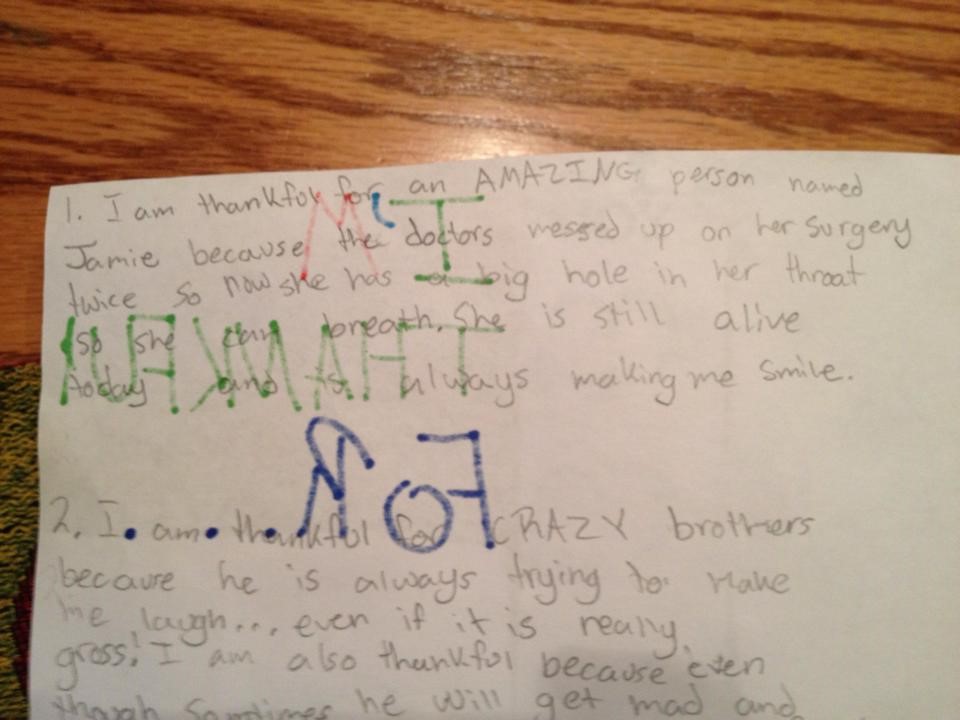 1. I am thankful for an AMAZING person named
Jamie because the doctors messed up on her surgery
twice so now she has a big hole in her throat
so she can breath. She is still alive
today and is always making me smile.
I'M
THANKFUL
FOR...
2. I am thankful for CRAZY brothers
because he is always trying to make
me laugh... even if it is really
gross! I am also thankful because even
though sometimes he will get mad and